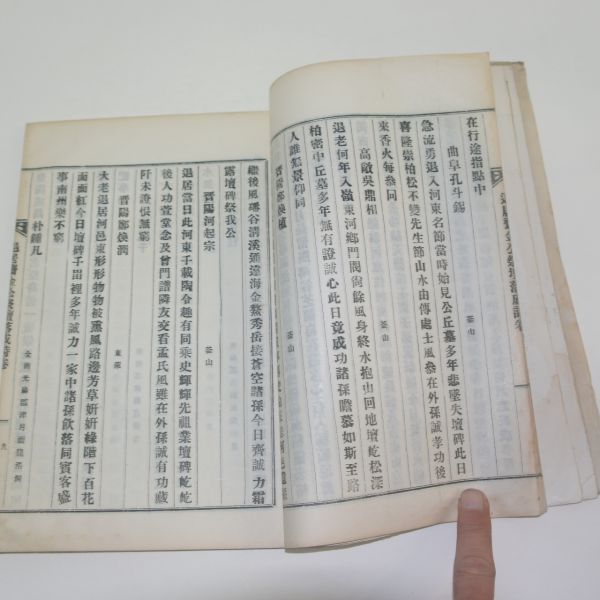 在行途指點中
曲阜孔斗錫 釜山
急流勇退入河東名節當時始見公丘墓多年悲墜失壇碑此日
喜隆崇柏松不變先生節山水由傳處士風叅在外孫誠孝功後
來香火每叅同
高敞吳鼎相
退老何年入嶺東河鄉門閥尙餘風身終水抱山回地壇屹松深
柏密中丘墓多年無有證誠心此日竟成功諸孫瞻慕如斯至路
人誰怎景仰同
晋陽鄭煥植 釜山
繼後風礀谷淸溪通遠海金鰲秀岳接蒼空諸孫今日齊誠力霜
露壇碑祭我公
晋陽河起宗 釜山
退居當日此河東千載陶令趣有同乘史輝輝先祖業壇碑屹屹
後人功萱堂念及曾門譜隣友交看孟氏風雖在外孫誠有功蔵
阡未證恨無窮
晋陽鄭煥潤 東萊
大老退居河邑東形形物物被薰風路邊芳草姸姸綠階下百花
面面紅今日壇碑千出裡多年誠力一家中諸孫飮落同賓客盛
事南州樂不窮
朴鍾凡 全南光陽
九